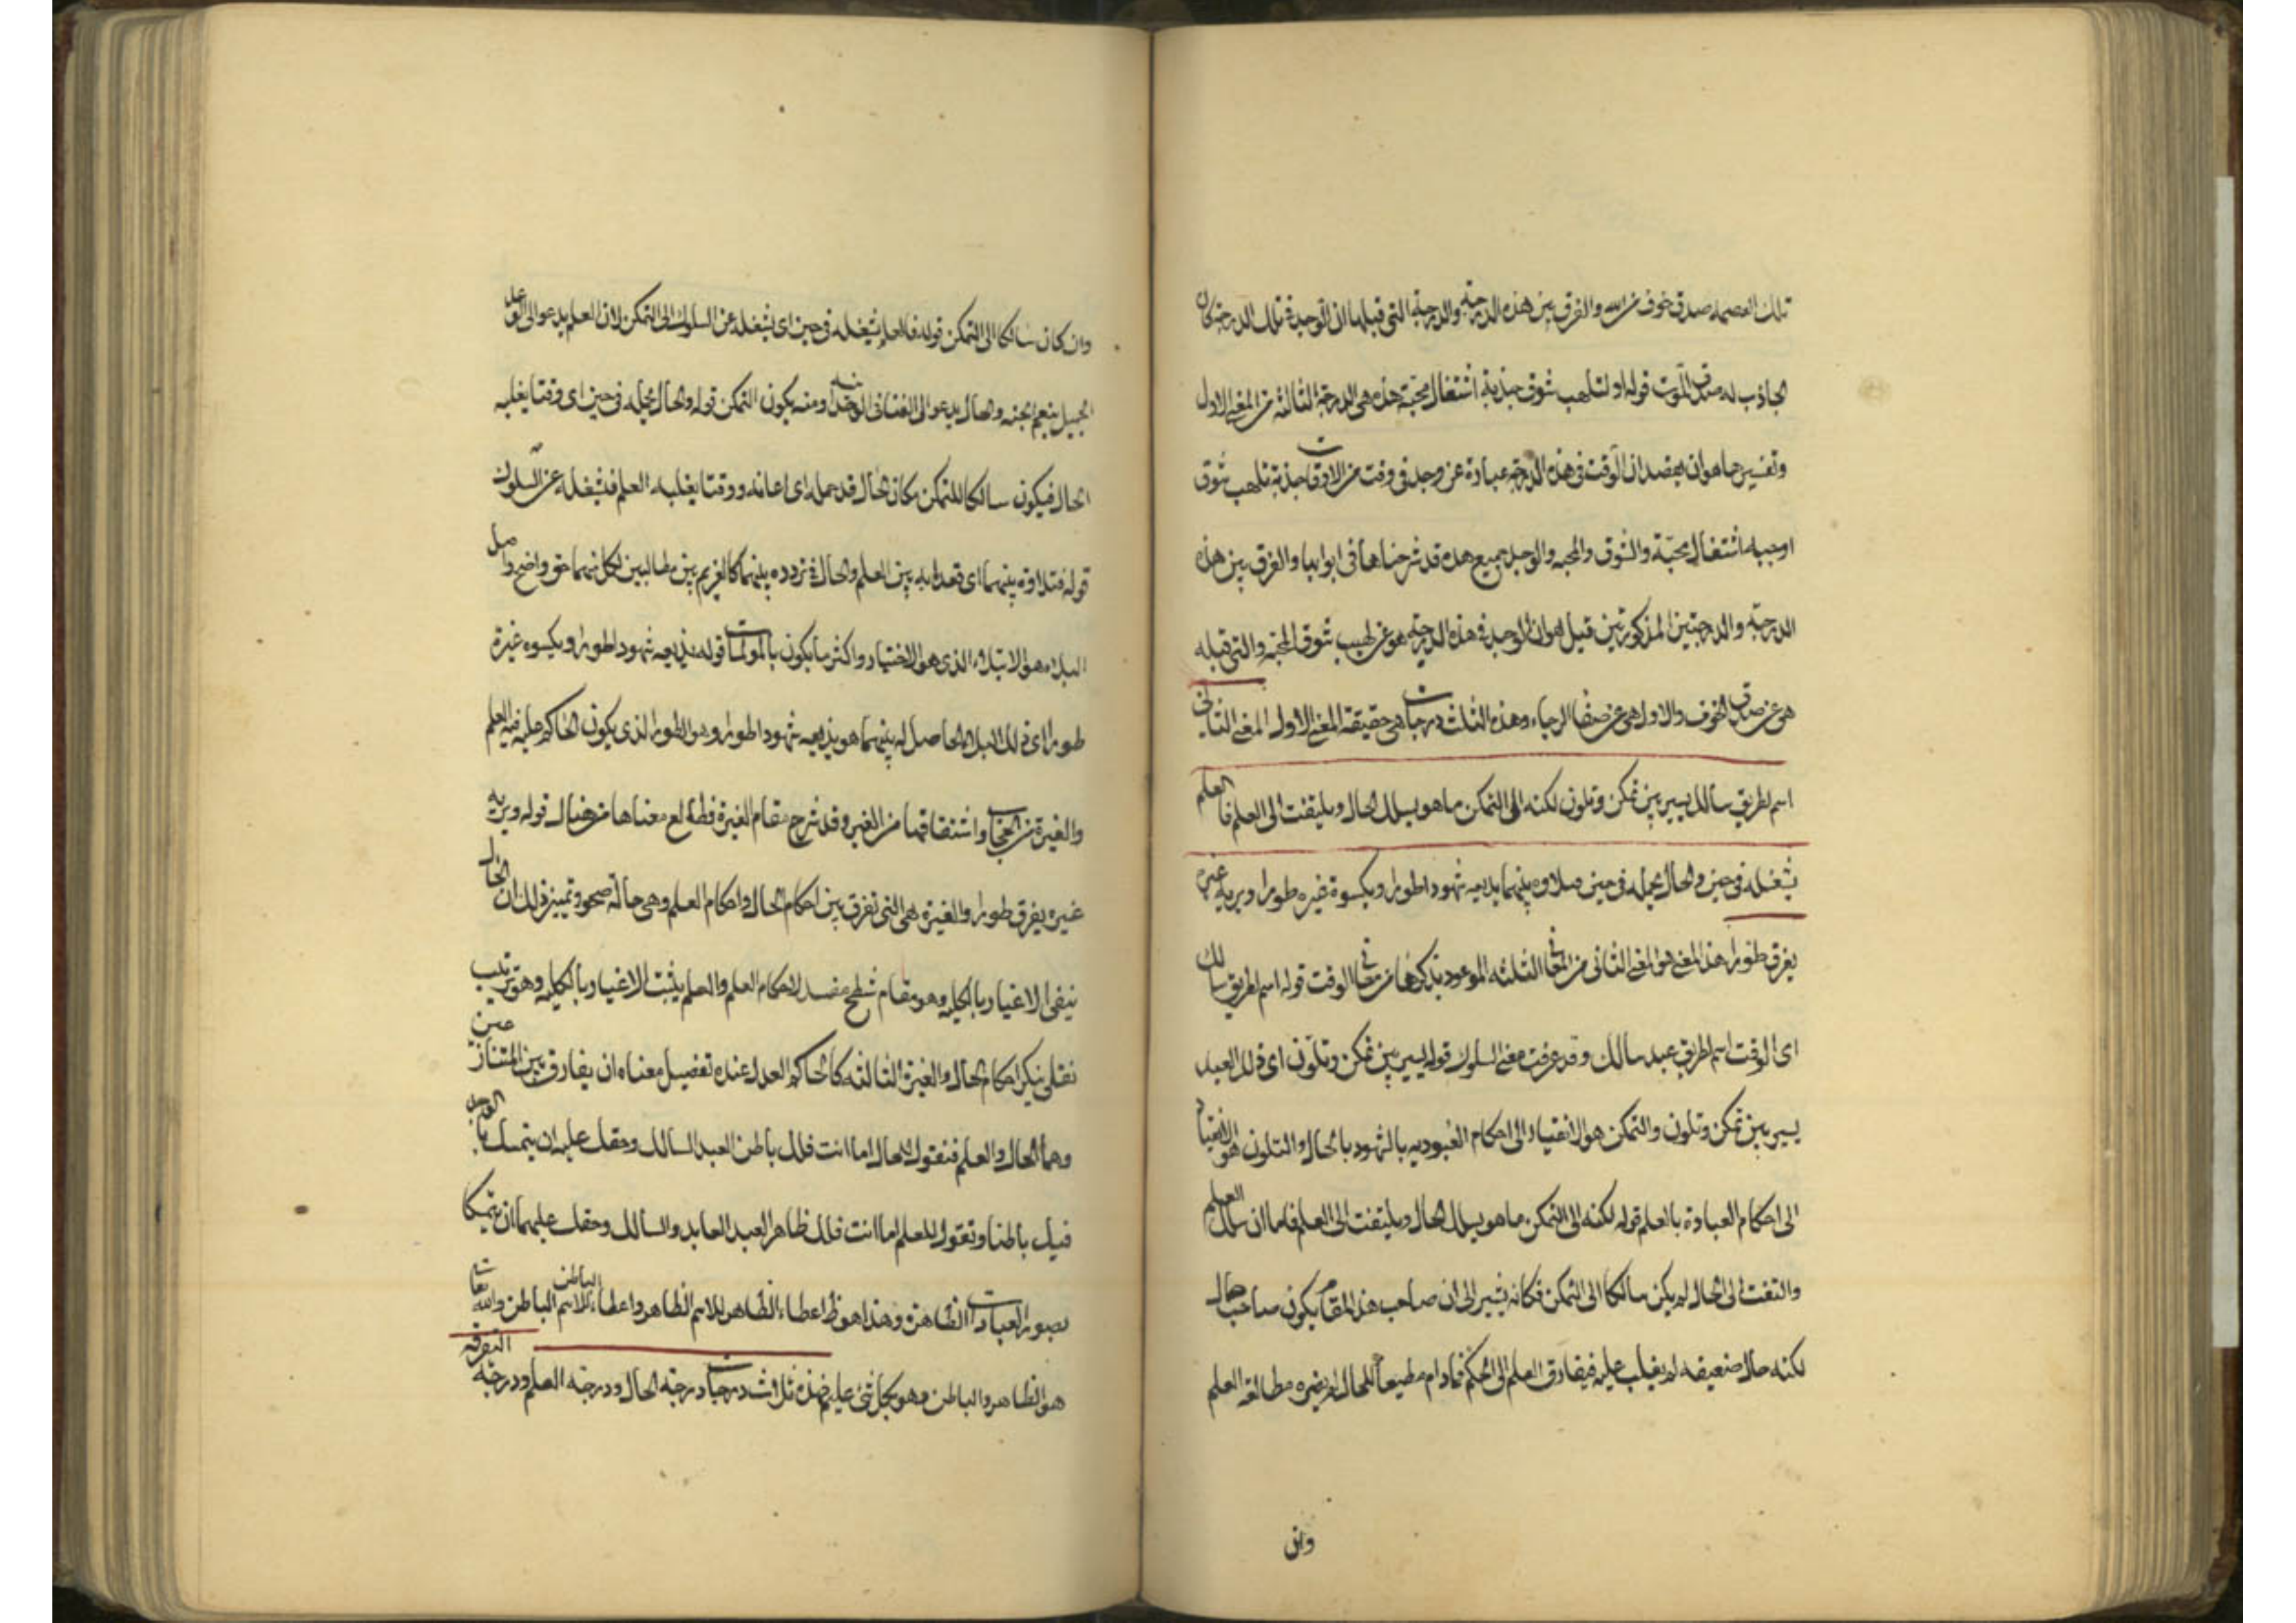 تلك العصمه صدق خوف من الله والفرق بين هذه الدرجة والدرجة التى قبلها ان الوجد فى تلك الدرجة كان
الجاذب له قوله او لتلهب شوق جذبه اشتعال محبّة هذه هى الدرجة الثالثة من المعنى الاول
وتفسيرها هو ان يقصد ان الوقت فى هذه الدرجة عبارة عن وجد فى وقت من الاوقات جذبة تلهب شوق
اوجبه اشتعال محبّة والشوق والمحبه والوجد جميع هذه قد شرحناها فى ابوابها والفرق بين هذه
الدرجة والدرجتين المذكورتين قبل هو ان الوجد فى هذه الدرجة هو عن لهيب شوق المحبة والتى قبله
هى عن صدق الخوف والاولى هى عن صفا الرجاء وهذه الثلث درجات هى حقيقة المعنى الاول المعنى الثانى
اسم لطريق سالك يسير بين تمكن وتلون لكنه الى التمكن ما هو يسلك الحال ويلتفت الى العلم فالعلم
يشغله فى حين والحال يحمله فى حين فبلاوه بينهما يذيعه شهودا طورا ويكسوه غيره طورا ويريه غيرة
يفرق طورا هذا المعنى هو المعنى الثانى من المعانى الثلثه الموعود بذكرها من معانى الوقت قوله اسم لطريق سالك
اى الوقت اسم لطريق عبد سالك وقد عرفت معنى السلوك قوله يسير بين تمكن وتلون اى ذلك العبد
يسير بين تمكن وتلون والتمكن هو الانقياد الى احكام العبوديه بالشهود بالحال والتلون هو الانقياد
الى احكام العبادة بالعلم قوله لكنه الى التمكن ما هو يسلك الحال ويلتفت الى العلم فاما ان سلك
والتفت الى الحال لم يكن سالكا الى التمكن فكانه يشير الى ان صاحب هذا المقام يكون صاحب حال
لكنه حال ضعيفه لم يغلب عليه فيفارق العلم الى الحكم فما دام مطيعا للحال لم يضره مطالعة العلم
وان
وان كان سالكا الى التمكن قوله فالعلم يشغله فى حين اى يشغله عن السلوك الى التمكن لان العلم يدعو الى
الجميل بنعيم الجنه والحال يدعو الى الفنا فى ومنه يكون التمكن قوله والحال يحمله فى حين اى وقتا يغلبه
الحال فيكون سالكا للتمكن فكان الحال قد حمله اى اعانه ووقتا يغلبه العلم فيشغله عن السلوك
قوله فبلاوه بينهما اى تعذيبه بين العلم والحال فى تردده بينهما كالغريم بين مطالبين لكل منهما حق واضح واصل
البلاء هو الابتلاء الذى هو الاختبار واكثر ما يكون بالمولمات قوله يذيعه شهودا طورا ويكسوه غيرة
طورا اى ذلك البلا الحاصل له بينهما هو يذيعه شهودا طورا وهو الطور الذى يكون الحاكم عليه فيه العلم
والغيرة من الحجاب واشتقاقها من الغير وقد شرح مقام الغيرة فطالع معناها من هناك قوله ويريه
غيره يفرق طورا والغيرة هى التى تفرق بين احكام الحال واحكام العلم وهى حالة صحو وتمييز وذلك ان الحال
ينفى الاغيار بالكليه وهو مقام شطح مفسد لاحكام العلم والعلم يثبت الاغيار بالكليه وهو ترتيب
نقلى ينكر احكام الحال والغيرة الثالثه كالحاكم العدل عنده تفصيل معناه ان يفارق بين المتنازعين
وهما الحال والعلم فنقول للحال اما انت فلك باطن العبد السالك وحقك عليه ان يتمسك بالعدل
فيك باطنا وتقول للعلم اما انت فلك ظاهر العبد العابد والسالك وحقك عليهما ان يتمسكا
بصور العبادات الظاهرة وهذا هو اعطاء الظاهر للاسم الظاهر واعطاء الباطن للاسم الباطن والله تعالى
هو الظاهر والباطن وهو بكل شئ عليم فهذه ثلاث درجات درجة الحال ودرجة العلم ودرجة التفرقه